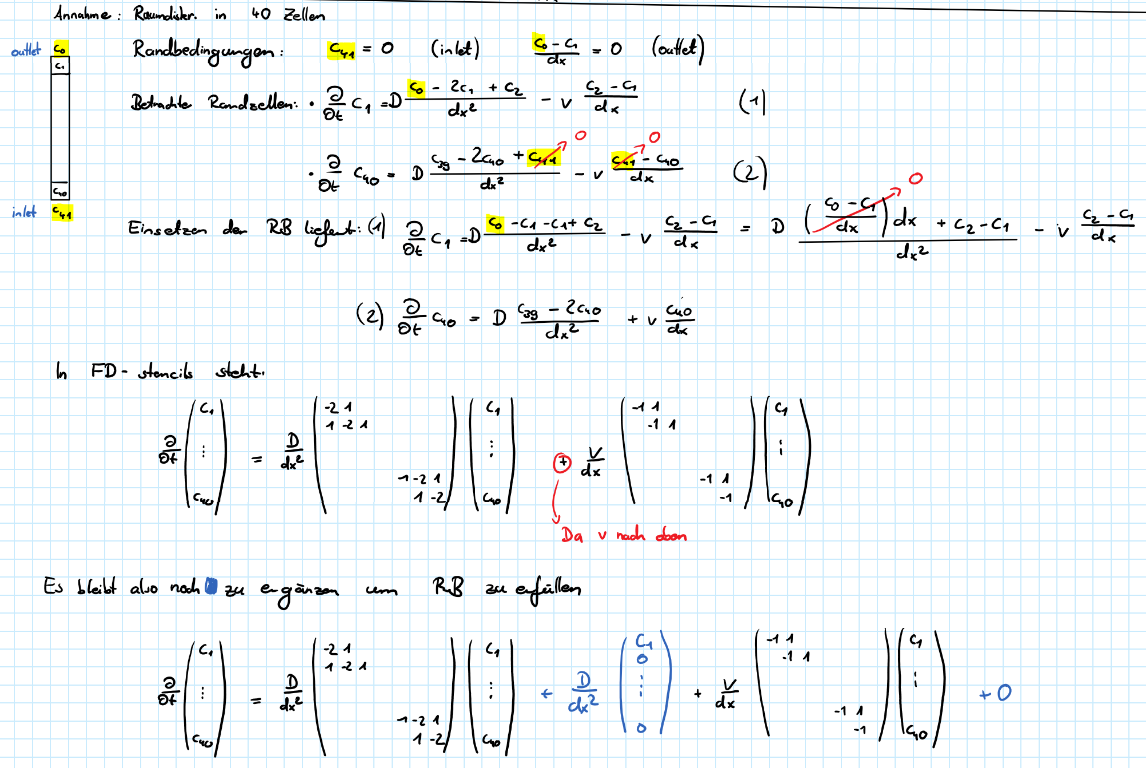 Annahme: Raumdiskr. in 40 Zellen
outlet c₀ Randbedingungen: c₄₁ = 0 (inlet) (c₀ - c₁)/dx = 0 (outlet)
c₁
Betrachte Randzellen: · ∂/∂t c₁ = D (c₀ - 2c₁ + c₂)/dx² - v (c₂ - c₁)/dx (1)
· ∂/∂t c₄₀ = D (c₃₉ - 2c₄₀ + c₄₁)/dx² - v (c₄₁ - c₄₀)/dx (2)
0 0
c₄₀
inlet c₄₁
Einsetzen der RB liefert: (1) ∂/∂t c₁ = D (c₀ - c₁ - c₁ + c₂)/dx² - v (c₂ - c₁)/dx = D (((c₀ - c₁)/dx) dx + c₂ - c₁)/dx² - v (c₂ - c₁)/dx
0
(2) ∂/∂t c₄₀ = D (c₃₉ - 2c₄₀)/dx² + v c₄₀/dx
In FD-stencils steht:
∂/∂t (c₁ ⋮ c₄₀) = D/dx² (-2 1 / 1 -2 1 / 1 -2 1 / 1 -2) (c₁ ⋮ c₄₀) + v/dx (-1 1 / -1 1 / -1 1 / -1) (c₁ ⋮ c₄₀)
Da v nach oben
Es bleibt also noch zu ergänzen um RB zu erfüllen
∂/∂t (c₁ ⋮ c₄₀) = D/dx² (-2 1 / 1 -2 1 / 1 -2 1 / 1 -2) (c₁ ⋮ c₄₀) + D/dx² (c₁ 0 ⋮ 0) + v/dx (-1 1 / -1 1 / -1 1 / -1) (c₁ ⋮ c₄₀) + 0